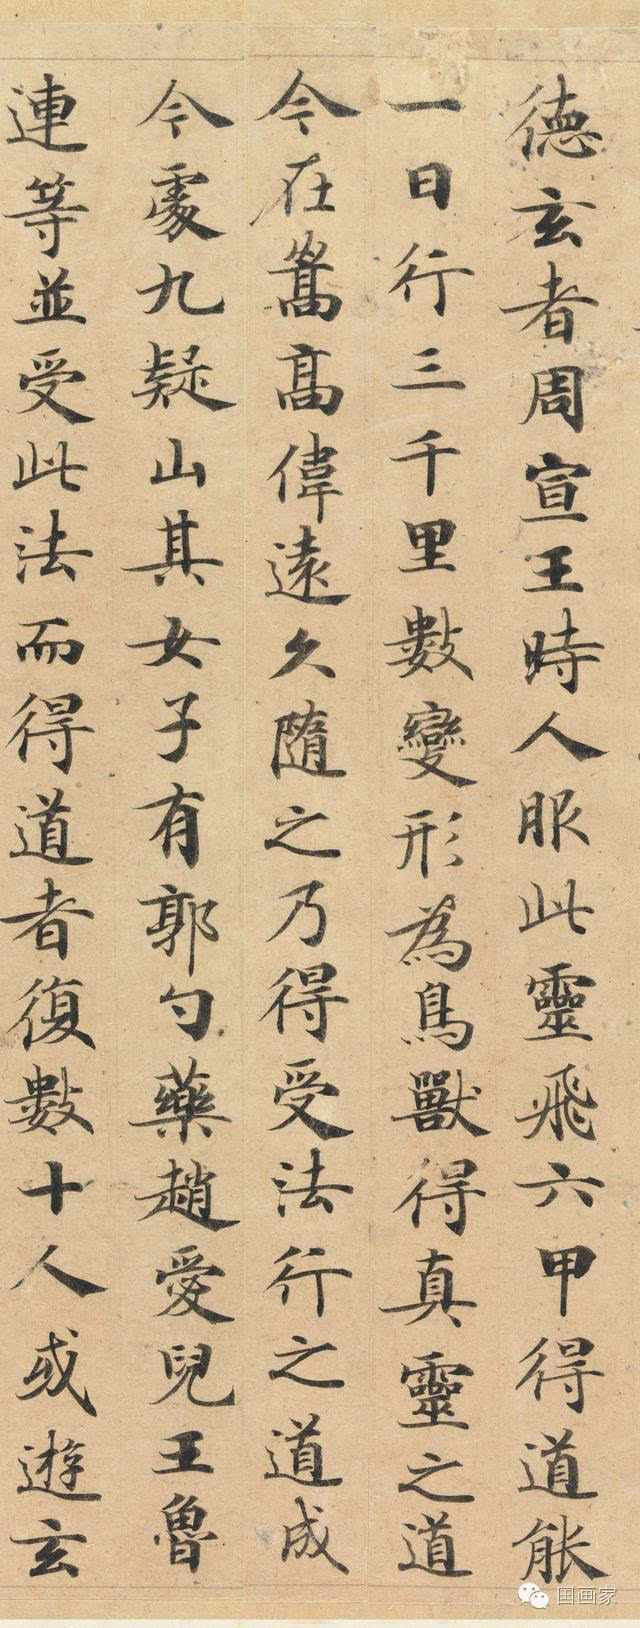 德玄者周宣王時人服此靈飛六甲得道能
一日行三千里數變形為鳥獸得真靈之道
今在嵩高偉遠久隨之乃得受法行之道成
今處九疑山其女子有郭勺藥趙愛兒王魯
連等並受此法而得道者復數十人或遊玄
田画家